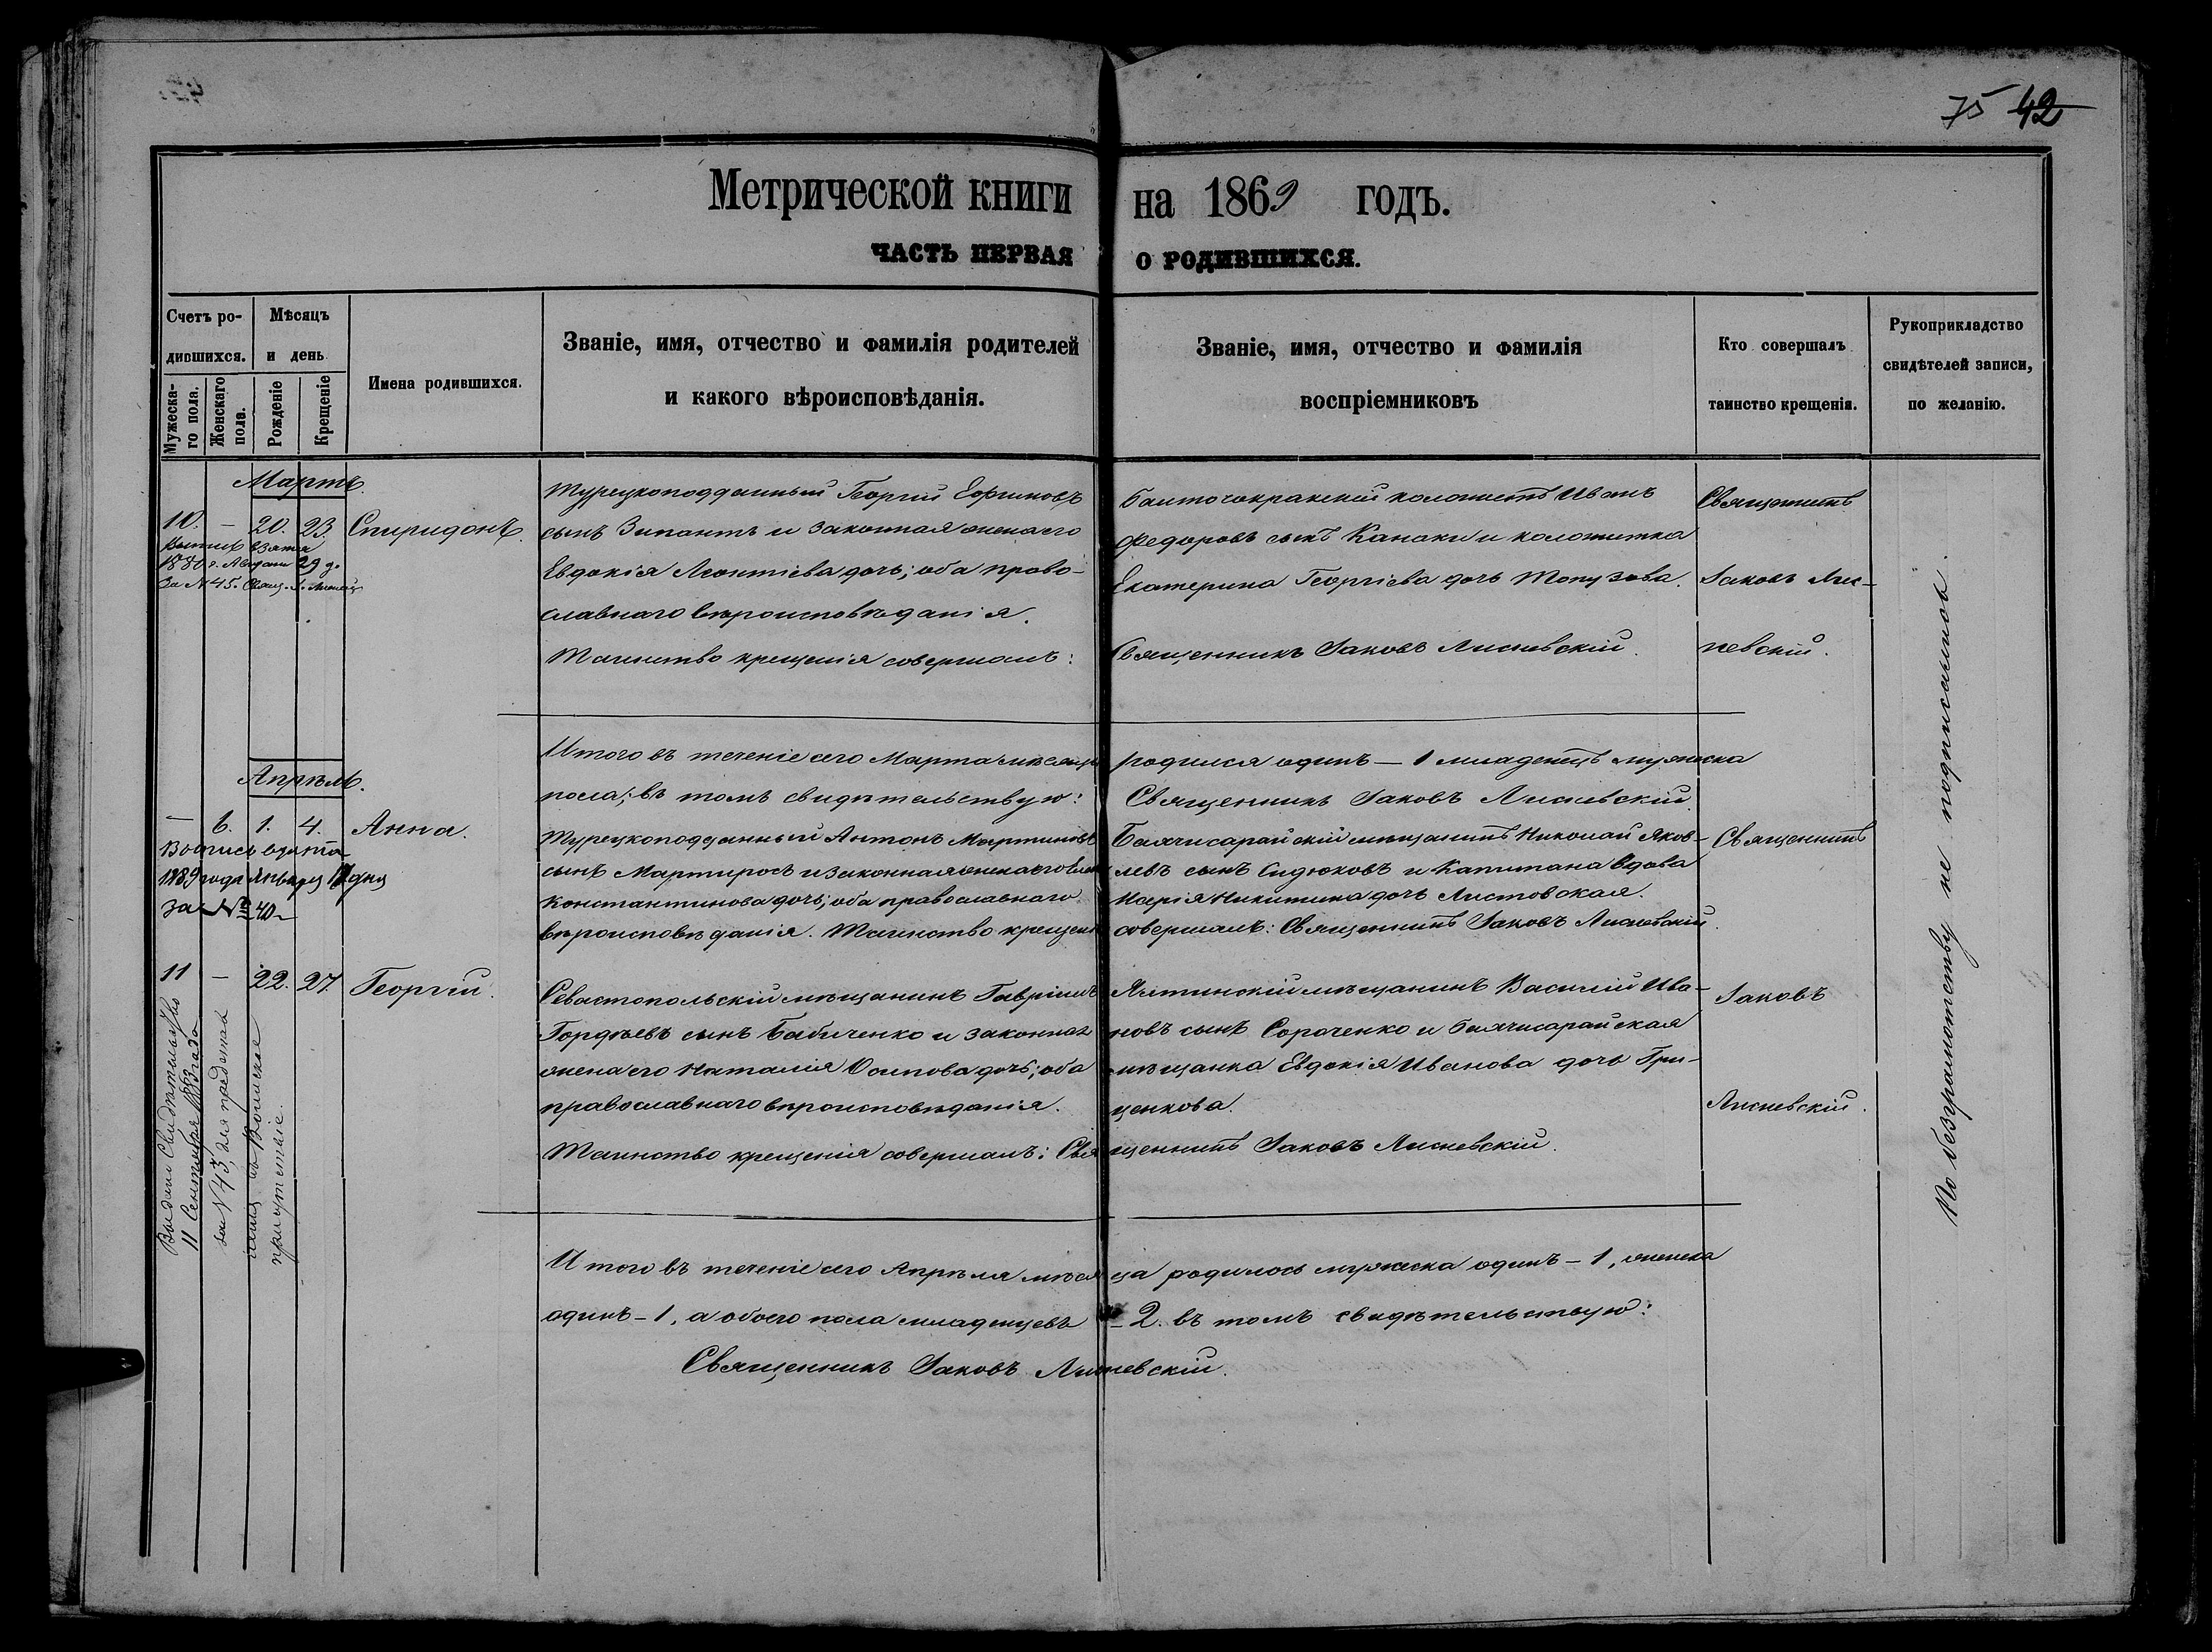 75 42
Метрической книги на 1869 годъ.
ЧАСТЬ ПЕРВАЯ О РОДИВШИХСЯ.
Счетъ ро-
дившихся.
Мужеска-
го пола.
Женскаго
пола.
Мѣсяцъ
и день
Рожденіе
Крещеніе
Имена родившихся.
Званіе, имя, отчество и фамилія родителей
и какого вѣроисповѣданія.
Званіе, имя, отчество и фамилія
воспріемниковъ
Кто совершалъ
таинство крещенія.
Рукоприкладство
свидѣтелей записи,
по желанію.
Мартъ.
10. — 20. 23. Спиридонъ.
взята
1880 г. 29 д.
За № 45. Свящ.
Турецкоподданный Георгій Ефимовъ
сынъ Зипантъ и законная жена его
Евдокія Леонтіева дочь; оба право-
славнаго вѣроисповѣданія.
Таинство крещенія совершалъ:
колонистъ Иванъ
Федоровъ сынъ Канаки и колонистка
Екатерина Георгіева дочь Топузова.
Священникъ Іаковъ Лисневскій.
Священникъ
Іаковъ Лис-
невскій.
Итого въ теченіе сего Марта мѣсяца родился одинъ — 1 младенецъ мужеска
пола; въ томъ свидѣтельствую: Священникъ Іаковъ Лисневскій.
Апрѣль.
— 6. 1. 4. Анна.
взята
1889 года Января 17 дня
За № 40
Турецкоподданный Антонъ Мартиновъ
сынъ Мартиросъ и законная жена его
Константинова дочь; оба православнаго
вѣроисповѣданія. Таинство крещенія
Бахчисарайскій мѣщанинъ Николай Яков-
левъ сынъ Сидюковъ и Капитана вдова
Марія Никитина дочь Листовская.
совершалъ: Священникъ Іаковъ Лисневскій.
Священникъ
11 — 22. 27. Георгій.
Выдано Свидѣтельство
11 Сентября 1883 года
за № 43, для представ
ленія въ Воинское
присутствіе.
Севастопольскій мѣщанинъ Гавріилъ
Гордѣевъ сынъ Бабиченко и законная
жена его Наталія Осипова дочь; оба
православнаго вѣроисповѣданія.
Таинство крещенія совершалъ: Свя
Ялтинскій мѣщанинъ Василій Ива-
новъ сынъ Сороченко и бахчисарайская
мѣщанка Евдокія Иванова дочь Гри-
ценкова.
щенникъ Іаковъ Лисневскій.
Іаковъ
Лисневскій.
Итого въ теченіе сего Апрѣля мѣсяца родилось мужеска одинъ — 1, женска
одинъ — 1, а обоего пола младенцевъ — 2. въ томъ свидѣтельствую:
Священникъ Іаковъ Лисневскій.
По безграмотству не подписались.